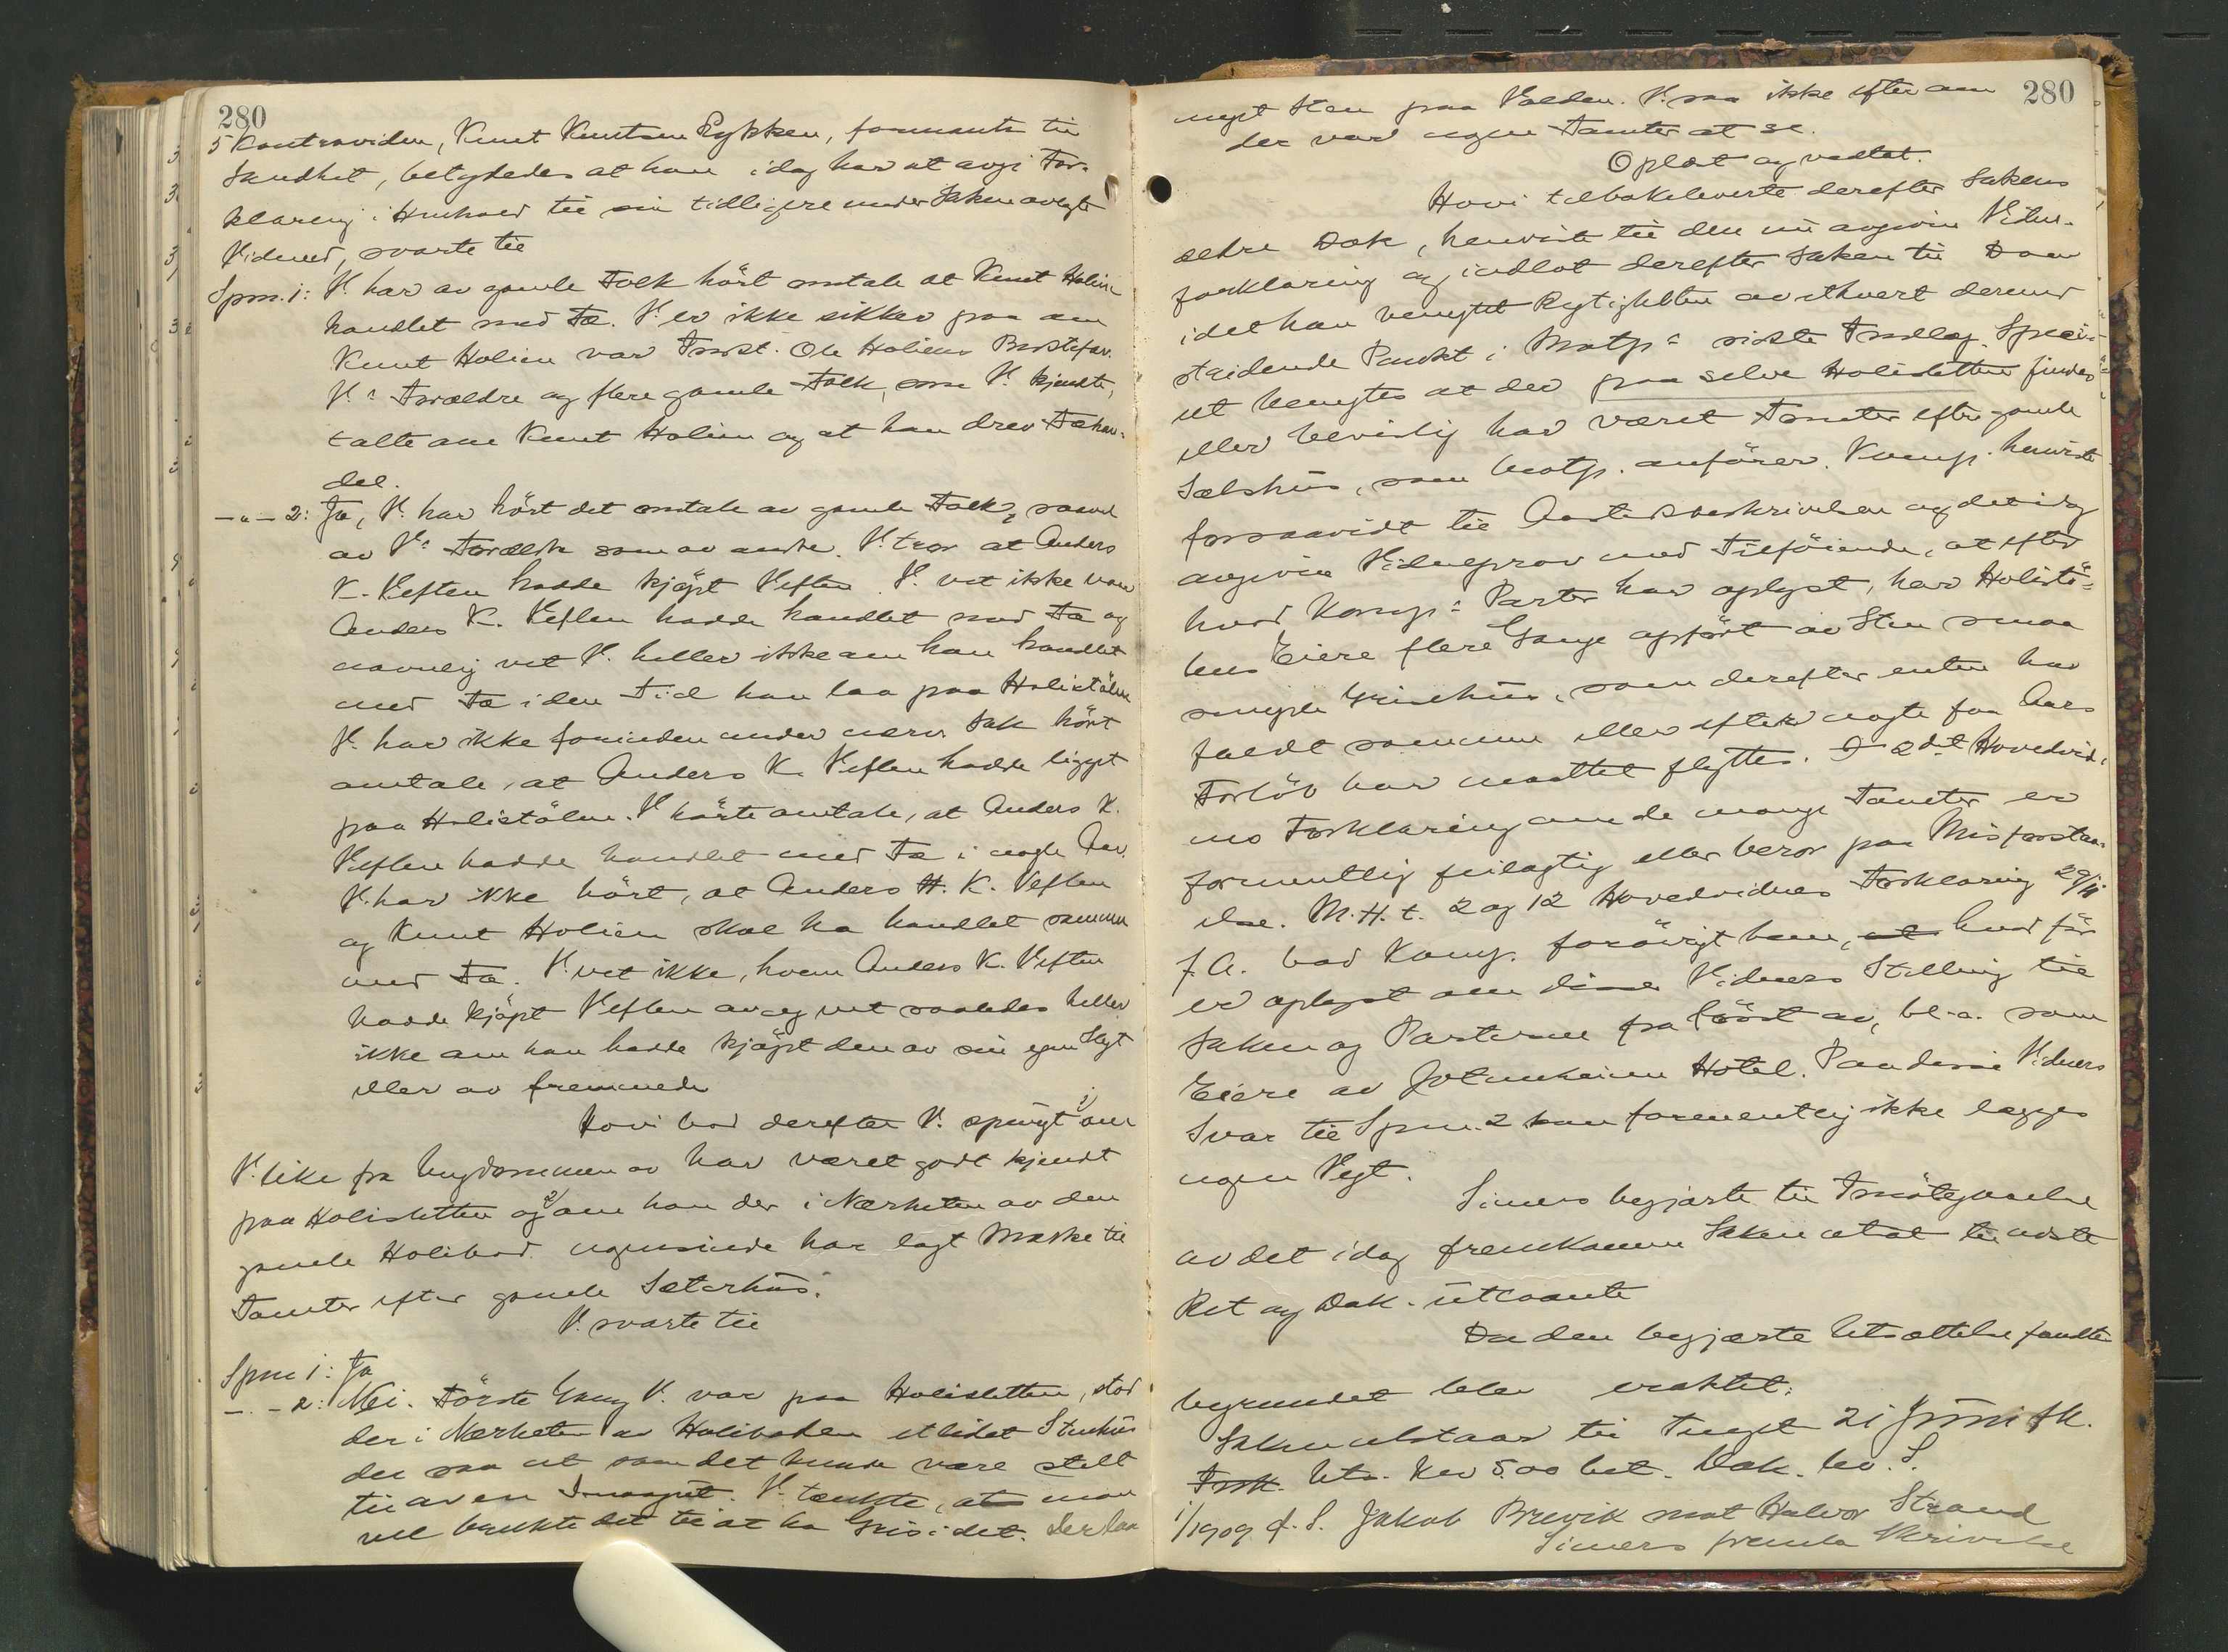 280
5 Kontraviden, Knut Knutsen Rykken, formante til
Sandhet, betydedes at han idag har at avgi For-
klaring i Henhold til sin tidligere under Saken avlagte
Vidneed, svarte til
Spm. 1: V. har av gamle Folk hört omtale at Knut Holien
handlet med Fæ. V. er ikke sikker paa om
Knut Holien var Ole Holiens Bestefar.
V.s Forældre og flere gamle Folk, som V. kjendte,
talte om Knut Holien og at han drev Fæhan-
del.
-"- 2: Ja, V. har hört det omtale av gamle Folk, saavel
av V.s Forældre som av andre. V. tror at Anders
K. Veflen hadde kjöpt Veflen. V. vet ikke naar
Anders K. Veflen hadde handlet med Fæ og
navnlig vet V. heller ikke om han handlet
med Fæ i den Tid han laa paa Holistölen
V. har ikke forinden under nærv. Sak hört
omtale, at Anders K. Veflen hadde ligget
paa Holistölen. V. hörte omtale, at Anders K.
Veflen hadde handlet med Fæ i nogle Aar.
V. har ikke hört, at Anders K. Veflen
og Knut Holien skal ha handlet sammen
med Fæ. V. vet ikke, hvem Anders K. Veflen
hadde kjöpt Veflen av og vet saaledes heller
ikke om han hadde kjöpt den av sin egen Slegt
eller av fremmede
Hovi bad derefter V. spurgt 1) om
V. like fra Ungdommen av har været godt kjendt
paa Holisletten og 2) om han der i Nærheten av den
gamle Holibod nogensinde har lagt Mærke til
Tomter efter gamle Sæterhus.
V. svarte til
Spm 1: Ja
-"- 2: Nei. Förste Gang V. var paa Holisletten, stod
der i Nærheten av Holiboden et lidet Stenhus
der saa ut som det kunde være stelt
til av en Smaagut. V. tænkte, at man
vel brukte det til at ha Gris i det. Der laa
280
noget Sten paa Volden. V. saa ikke efter om
der var nogen Tomter at se.
Oplæst og vedtat.
Hovi tilbakeleverte derefter Sakens
ældre Dok, henviste til den nu avgivne Vidne-
forklaring og indlot derefter Saken til Dom
idet han benegtet Rigtigheten av ethvert dermed
stridende Punkt i Motp.s sidste Indlæg. Speci-
elt benegtes at der paa selve Holisletten findes
eller bevislig har været Tomter efter gamle
Sælshus, som Motp. anförer. Komp. henviste
forsaavidt til Aastedsbeskrivelsen og det idag
avgivne Vidneprov med Tilföiende, at efter
hvad Komp.s Parter har oplyst, har Holistö-
lens Eiere flere Gange opfört av Sten smaa
simple Grisehus, som derefter enten har
faldt sammen eller efter nogle faa Aars
Forlöb har maattet flyttes. 2det Hovedvid-
nes Forklaring om de mange Tomter er
formentlig feilagtig eller beror paa Misforstaa-
else. M. H. t. 2 og 12 Hovedvidnes Forklaring 29/4
f. A. bad Komp. forövrigt bem., hvad för
er oplyst om disse Vidners Stilling til
Saken og Parterne fra först av, bl. a. som
Eiere av Jotunheimen Hotel. Paa disse Vidners
Svar til Spm. 2 kan formentlig ikke lægges
nogen Vegt.
Simers begjærte til Imötegaaelse
av det idag fremkomne Saken utsat til næste
Ret og Dok. utlaante
Da den begjærte Utsættelse fandtes
begrundet blev eraktet:
Saken utstaar til Tinget 21 Juni fk.
Uts. Kr 5.00 bet. Dok. lev. S.
1/1909 f. S. Jakob Brevik mot Halvor Strand
Simers fremla Skrivelse